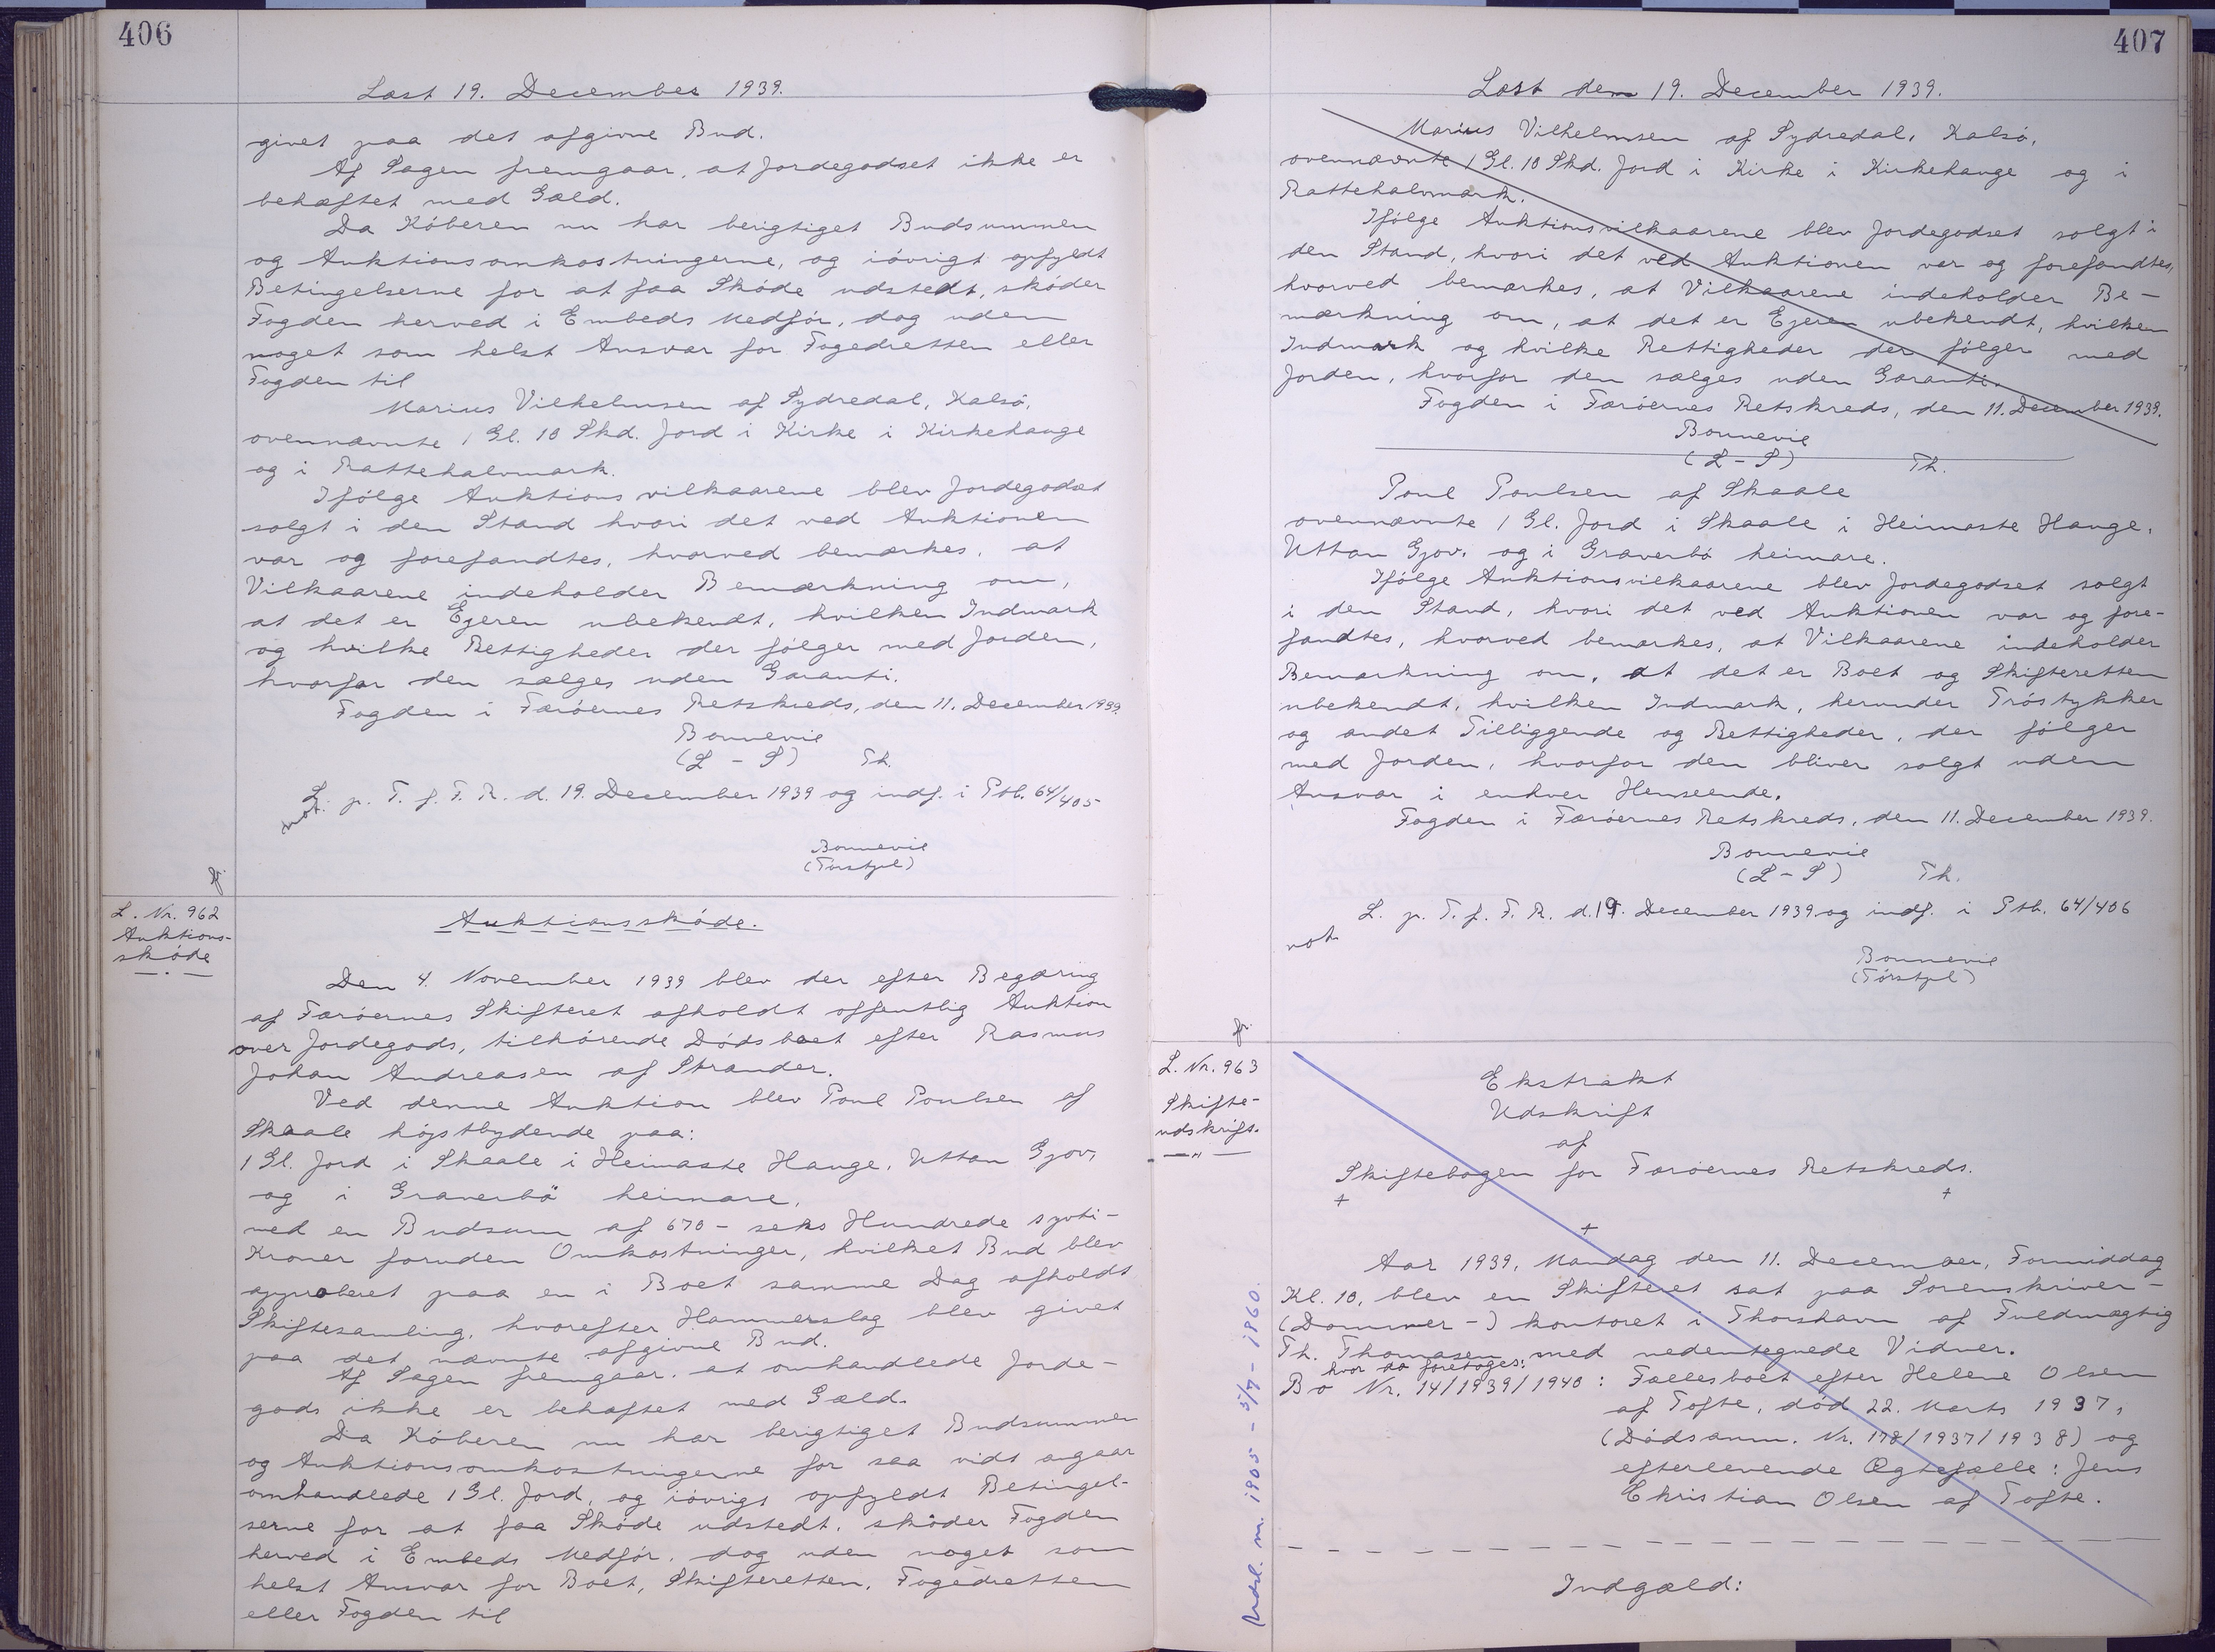 406
Læst 19. December 1939.
givet paa det afgivne Bud.
Af Sagen fremgaar, at Jordegodset ikke er
behæftet med Gæld.
Da Köberen nu har berigtiget Budsummen
og Auktionsomkostningerne, og iövrigt opfyldt
Betingelserne for at faa Sköde udstedt, sköder
Fogden herved i Embeds Medför, dog uden
noget som helst Ansvar for Fogedretten eller
Fogden til
Marius Vilhelmsen af Sydredal, Kalsö,
ovennævnte 1 Gl. 10 Skd. Jord i Kirke i Kirkehauge
og i Rattehalvmark.
Ifölge Auktionsvilkaarene blev Jordegodset
solgt i den Stand hvori det ved Auktionen
var og forefandtes, hvorved bemærkes, at
Vilkaarene indeholder Bemærkning om,
at det er Ejeren ubekendt, hvilken Indmark
og hvilke Rettigheder der fölger med Jorden,
hvorfor den sælges uden Garanti.
Fogden i Færöernes Retskreds, den 11. December 1939.
Bonnevie
(L - S) Th.
L. p. T. f. F. R. d. 19. December 1939 og indf. i Ptb. 64/405
not.
Bonnevie
(Tórstpl)
L. Nr. 962
Auktions-
sköde
Auktionssköde.
Den 4. November 1939 blev der efter Begæring
af Færöernes Skifteret afholdt offentlig Auktion
over Jordegods, tilhörende Dödsboet efter Rasmus
Johan Andreasen af Strander.
Ved denne Auktion blev Poul Poulsen af
Skaale höjstbydende paa:
1 Gl. Jord i Skaale i Heimaste Hauge, Uttan Gjov,
og i Graverbö heimare,
ved en Budsum af 670 - seks Hundrede syvti -
Kroner foruden Omkostninger, hvilket Bud blev
approberet paa en i Boet samme Dag afholdt
Skiftesamling, hvorefter Hammerslag blev givet
paa det nævnte afgivne Bud.
Af Sagen fremgaar, at omhandlede Jorde-
gods ikke er behæftet med Gæld.
Da Köberen nu har berigtiget Budsummen
og Auktionsomkostningerne for saa vidt angaar
omhandlede 1 Gl. Jord, og iövrigt opfyldt Betingel-
serne for at faa Sköde udstedt, sköder Fogden
herved i Embeds Medför, dog uden noget som
helst Ansvar for Boet, Skifteretten, Fogedretten
eller Fogden til
407
Læst den 19. December 1939.
Marius Vilhelmsen af Sydredal, Kalsö,
ovennævnte 1 Gl. 10 Skd. Jord i Kirke i Kirkehauge og i
Rattehalvmark.
Ifölge Auktionsvilkaarene blev Jordegodset solgt i
den Stand, hvori det ved Auktionen var og forefandtes,
hvorved bemærkes, at Vilkaarene indeholder Be-
mærkning om, at det er Ejeren ubekendt, hvilken
Indmark og hvilke Rettigheder der fölger med
Jorden, hvorfor den sælges uden Garanti.
Fogden i Færöernes Retskreds, den 11. December 1939.
Bonnevie
(L - S) Th.
Poul Poulsen af Skaale
ovennævnte 1 Gl. Jord i Skaale i Heimaste Hauge,
Uttan Gjov, og i Graverbö heimare.
Ifölge Auktionsvilkaarene blev Jordegodset solgt
i den Stand, hvori det ved Auktionen var og fore-
fandtes, hvorved bemærkes, at Vilkaarene indeholder
Bemærkning om, at det er Boet og Skifteretten
ubekendt, hvilken Indmark, herunder Tröstykker
og andet Tilliggende og Rettigheder, der fölger
med Jorden, hvorfor den bliver solgt uden
Ansvar i enhver Henseende.
Fogden i Færöernes Retskreds, den 11. December 1939.
Bonnevie
(L - S) Th.
L. p. T. f. F. R. d. 19. December 1939 og indf. i Ptb. 64/406
not.
Bonnevie
(Tórstpl)
L. Nr. 963
Skifte-
udskrift.
Ekstrakt
Udskrift
af
Skiftebogen for Færöernes Retskreds.
Aar 1939, Mandag den 11. December, Formiddag
Kl. 10, blev en Skifteret sat paa Sorenskriver-
(Dommer-) kontoret i Thorshavn af Fuldmægtig
Th. Thomasen med nedentegnede Vidner.
hvor da foretoges:
Bo Nr. 14/1939/1940: Fællesboet efter Helene Olsen
af Tofte, död 22. Marts 1937,
(Dödsanm. Nr. 178/1937/1938) og
efterlevende Ægtefælle: Jens
Ekristian Olsen af Tofte.
Indgæld:
Udsl. m. 1905 - 5/7 - 1860.